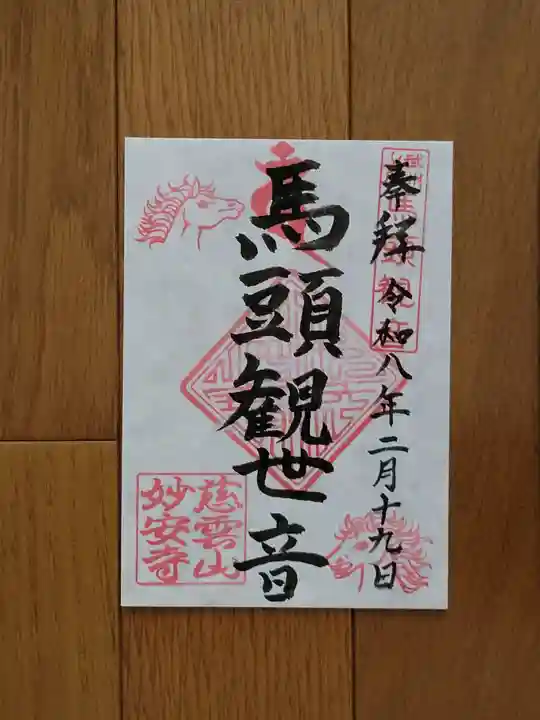 奉拜
令和八年二月十九日
馬頭観世音
慈雲山
妙安寺